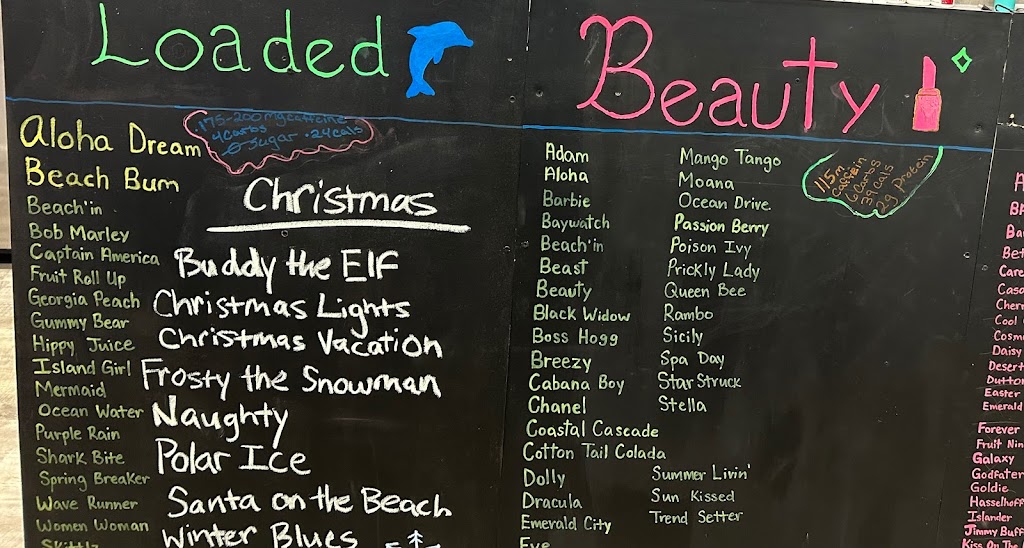 Loaded
175-200mg caffeine
4carbs
0 sugar • 24cals
Aloha Dream
Beach Bum
Beach'in
Bob Marley
Captain America
Fruit Roll Up
Georgia Peach
Gummy Bear
Hippy Juice
Island Girl
Mermaid
Ocean Water
Purple Rain
Shark Bite
Spring Breaker
Wave Runner
Women Woman
Skittlz
Christmas
Buddy the Elf
Christmas Lights
Christmas Vacation
Frosty the Snowman
Naughty
Polar Ice
Santa on the Beach
Winter Blues
Beauty
Adam
Aloha
Barbie
Baywatch
Beach'in
Beast
Beauty
Black Widow
Boss Hogg
Breezy
Cabana Boy
Chanel
Coastal Cascade
Cotton Tail Colada
Dolly
Dracula
Emerald City
Eve
Mango Tango
Moana
Ocean Drive
Passion Berry
Poison Ivy
Prickly Lady
Queen Bee
Rambo
Sicily
Spa Day
Star Struck
Stella
Summer Livin'
Sun Kissed
Trend Setter
Carbs
Cals
2g Protein
Cool
Daisy
Desert
Dutton
Easter
Emerald
Forever
Fruit Nin
Galaxy
Godfather
Goldie
Hasselhoff
Islander
Jimmy Buff
Kiss On The